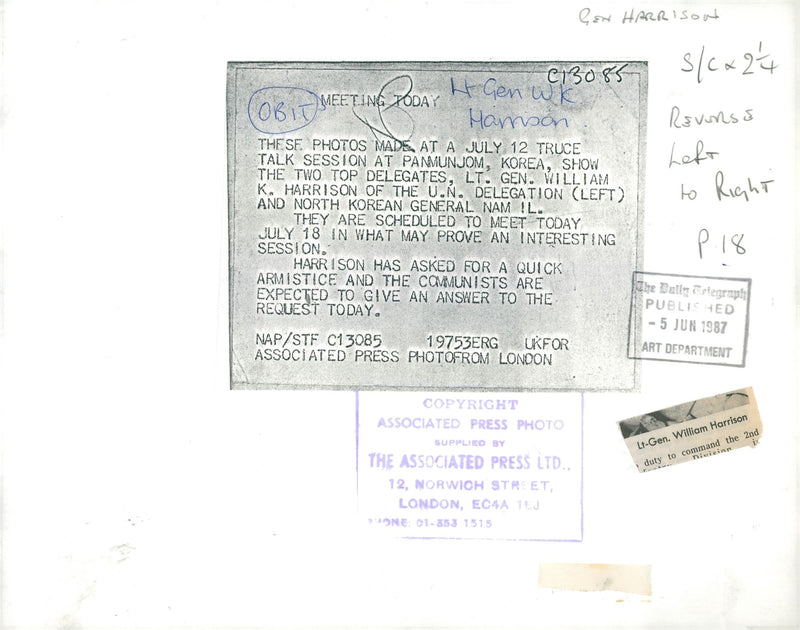 GEN HARRISON
C13085
S/C x 2 1/4
Lt Gen WK
Harrison
OBIT
MEETING TODAY
REVERSE
Left
to Right
P 18
THESE PHOTOS MADE AT A JULY 12 TRUCE
TALK SESSION AT PANMUNJOM, KOREA, SHOW
THE TWO TOP DELEGATES, LT. GEN. WILLIAM
K. HARRISON OF THE U.N. DELEGATION (LEFT)
AND NORTH KOREAN GENERAL NAM IL.
THEY ARE SCHEDULED TO MEET TODAY
JULY 18 IN WHAT MAY PROVE AN INTERESTING
SESSION.
HARRISON HAS ASKED FOR A QUICK
ARMISTICE AND THE COMMUNISTS ARE
EXPECTED TO GIVE AN ANSWER TO THE
REQUEST TODAY.
NAP/STF C13085 19753ERG UKFOR
ASSOCIATED PRESS PHOTOFROM LONDON
The Daily Telegraph
PUBLISHED
- 5 JUN 1987
ART DEPARTMENT
COPYRIGHT
ASSOCIATED PRESS PHOTO
SUPPLIED BY
THE ASSOCIATED PRESS LTD.,
12, NORWICH STREET,
LONDON, EC4A 1EJ
PHONE: 01-353 1515
Lt-Gen. William Harrison
duty to command the 2nd
Division